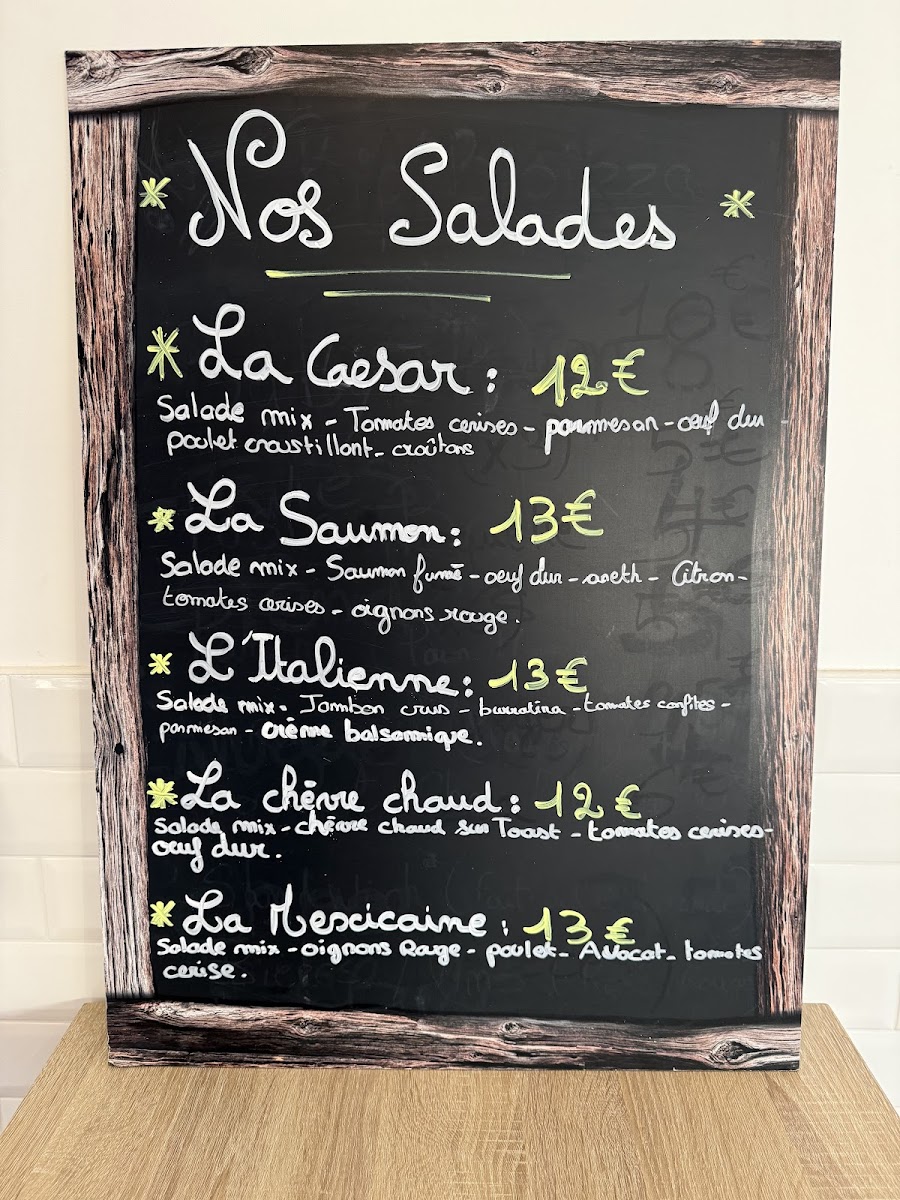 * Nos Salades *
* La Caesar : 12€
Salade mix - Tomates cerises - parmesan - oeuf dur -
poulet croustillant - croûtons
* La Saumon : 13€
Salade mix - Saumon fumé - oeuf dur - aneth - Citron -
tomates cerises - oignons rouge .
* L'Italienne : 13€
Salade mix - Jambon crus - burratina - tomates confites -
parmesan - crème balsamique .
* La chèvre chaud : 12€
Salade mix - chèvre chaud sur Toast - tomates cerises -
oeuf dur .
* La Mexicaine : 13€
Salade mix - oignons Rouge - poulet - Avocat - tomates
cerise .